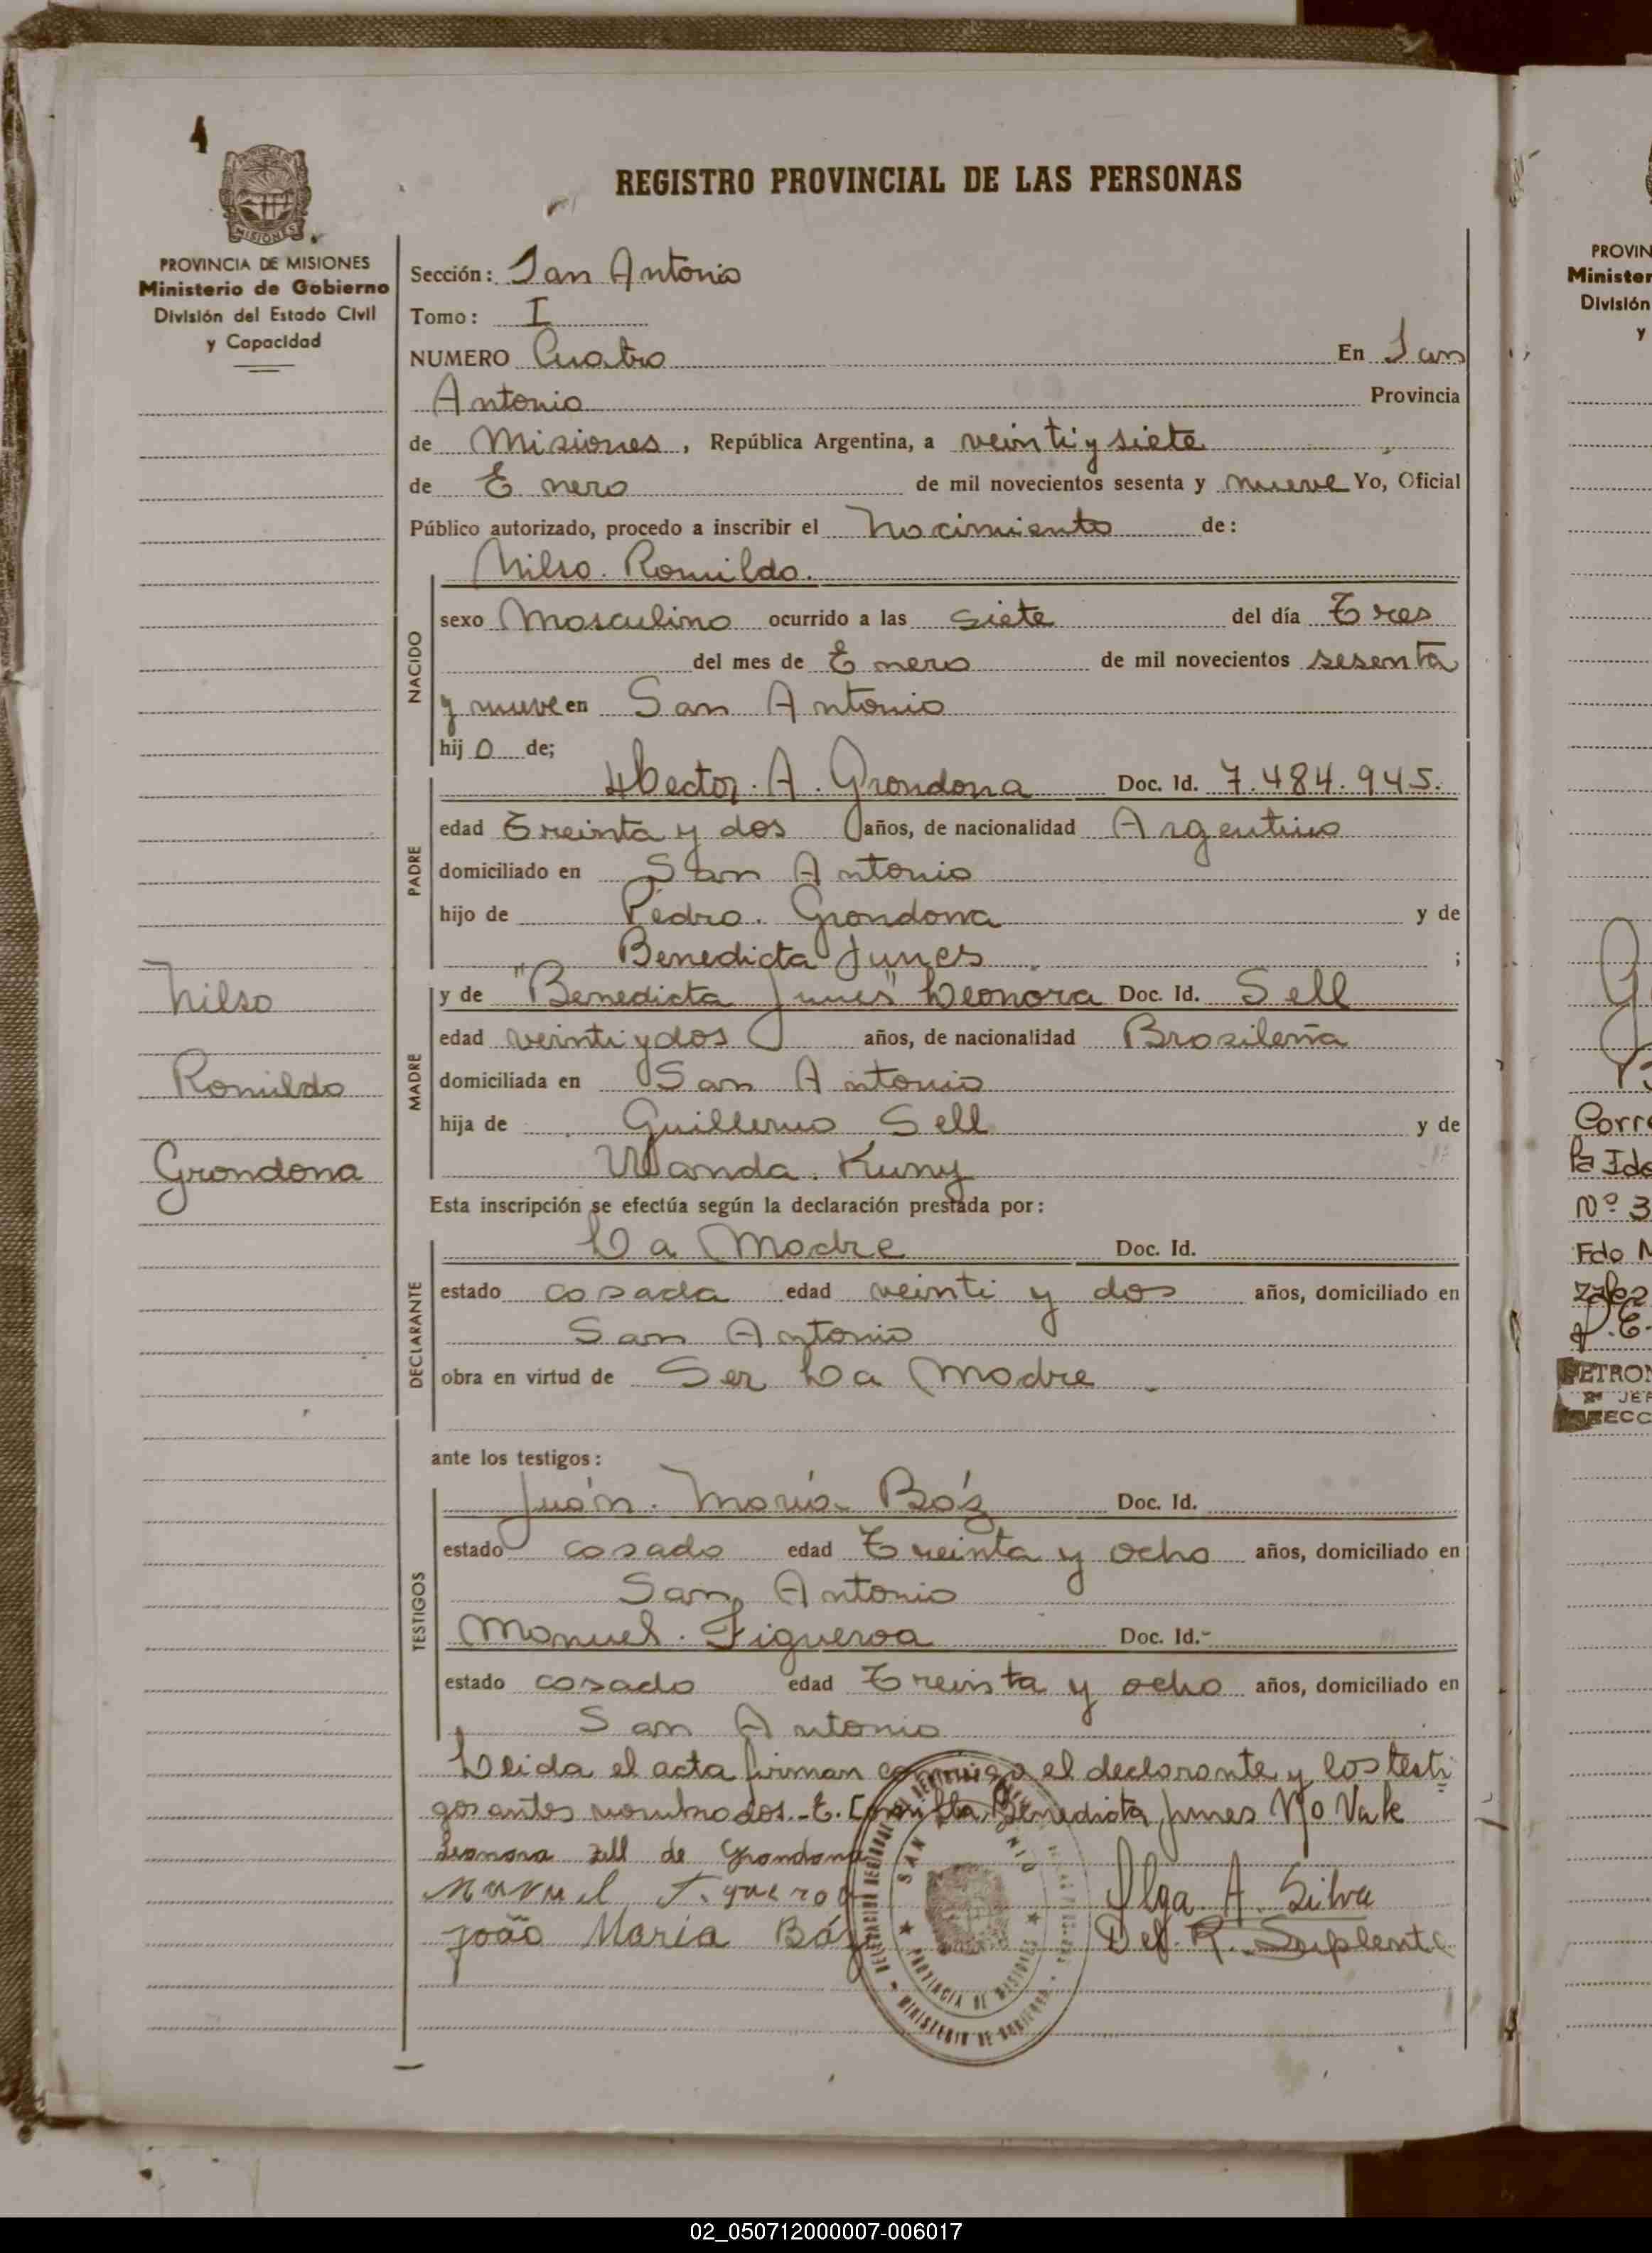 4
REGISTRO PROVINCIAL DE LAS PERSONAS
MISIONES
PROVINCIA DE MISIONES
Ministerio de Gobierno
División del Estado Civil
y Capacidad
Sección: San Antonio
Tomo: I
NUMERO Cuatro En San
Antonio Provincia
de Misiones, República Argentina, a veinti y siete
de Enero de mil novecientos sesenta y nueve Yo, Oficial
Público autorizado, procedo a inscribir el Nacimiento de:
Nilso. Romildo.
NACIDO
sexo Masculino ocurrido a las siete del día Tres
del mes de Enero de mil novecientos sesenta
y nueve en San Antonio
hijo de;
PADRE
Hector. A. Grondona Doc. Id. 7.484.945.
edad Treinta y dos años, de nacionalidad Argentino
domiciliado en San Antonio
hijo de Pedro. Grondona y de
Benedicta Junes ;
MADRE
y de "Benedicta Junes" Leonora Doc. Id. Sell
edad veinti y dos años, de nacionalidad Brasileña
domiciliada en San Antonio
hija de Guillermo Sell y de
Wanda. Kuny
Nilso
Romildo
Grondona
Esta inscripción se efectúa según la declaración prestada por:
DECLARANTE
La Madre Doc. Id.
estado casada edad veinti y dos años, domiciliado en
San Antonio
obra en virtud de Ser La Madre
ante los testigos:
TESTIGOS
Juán. María Báz Doc. Id.
estado casado edad Treinta y ocho años, domiciliado en
San Antonio
Manuel. Figueroa Doc. Id.-
estado casado edad Treinta y ocho años, domiciliado en
San Antonio
Leida el acta firman conmigo el declarante y los testi
gos antes nombrados.-E. Benedicta Junes No Vale
Leonora sell de Grondona
Manuel Figueroa
Olga A. Silva
João Maria Báz
Del. R. Suplente
SAN ANTONIO
PROVINCIA DE MISIONES
MINISTERIO DE GOBIERNO
PROVIN
Minister
División
y
Corre
la Ide
Nº 3
Fdo
PETRON
JEF
SECC
02_050712000007-006017